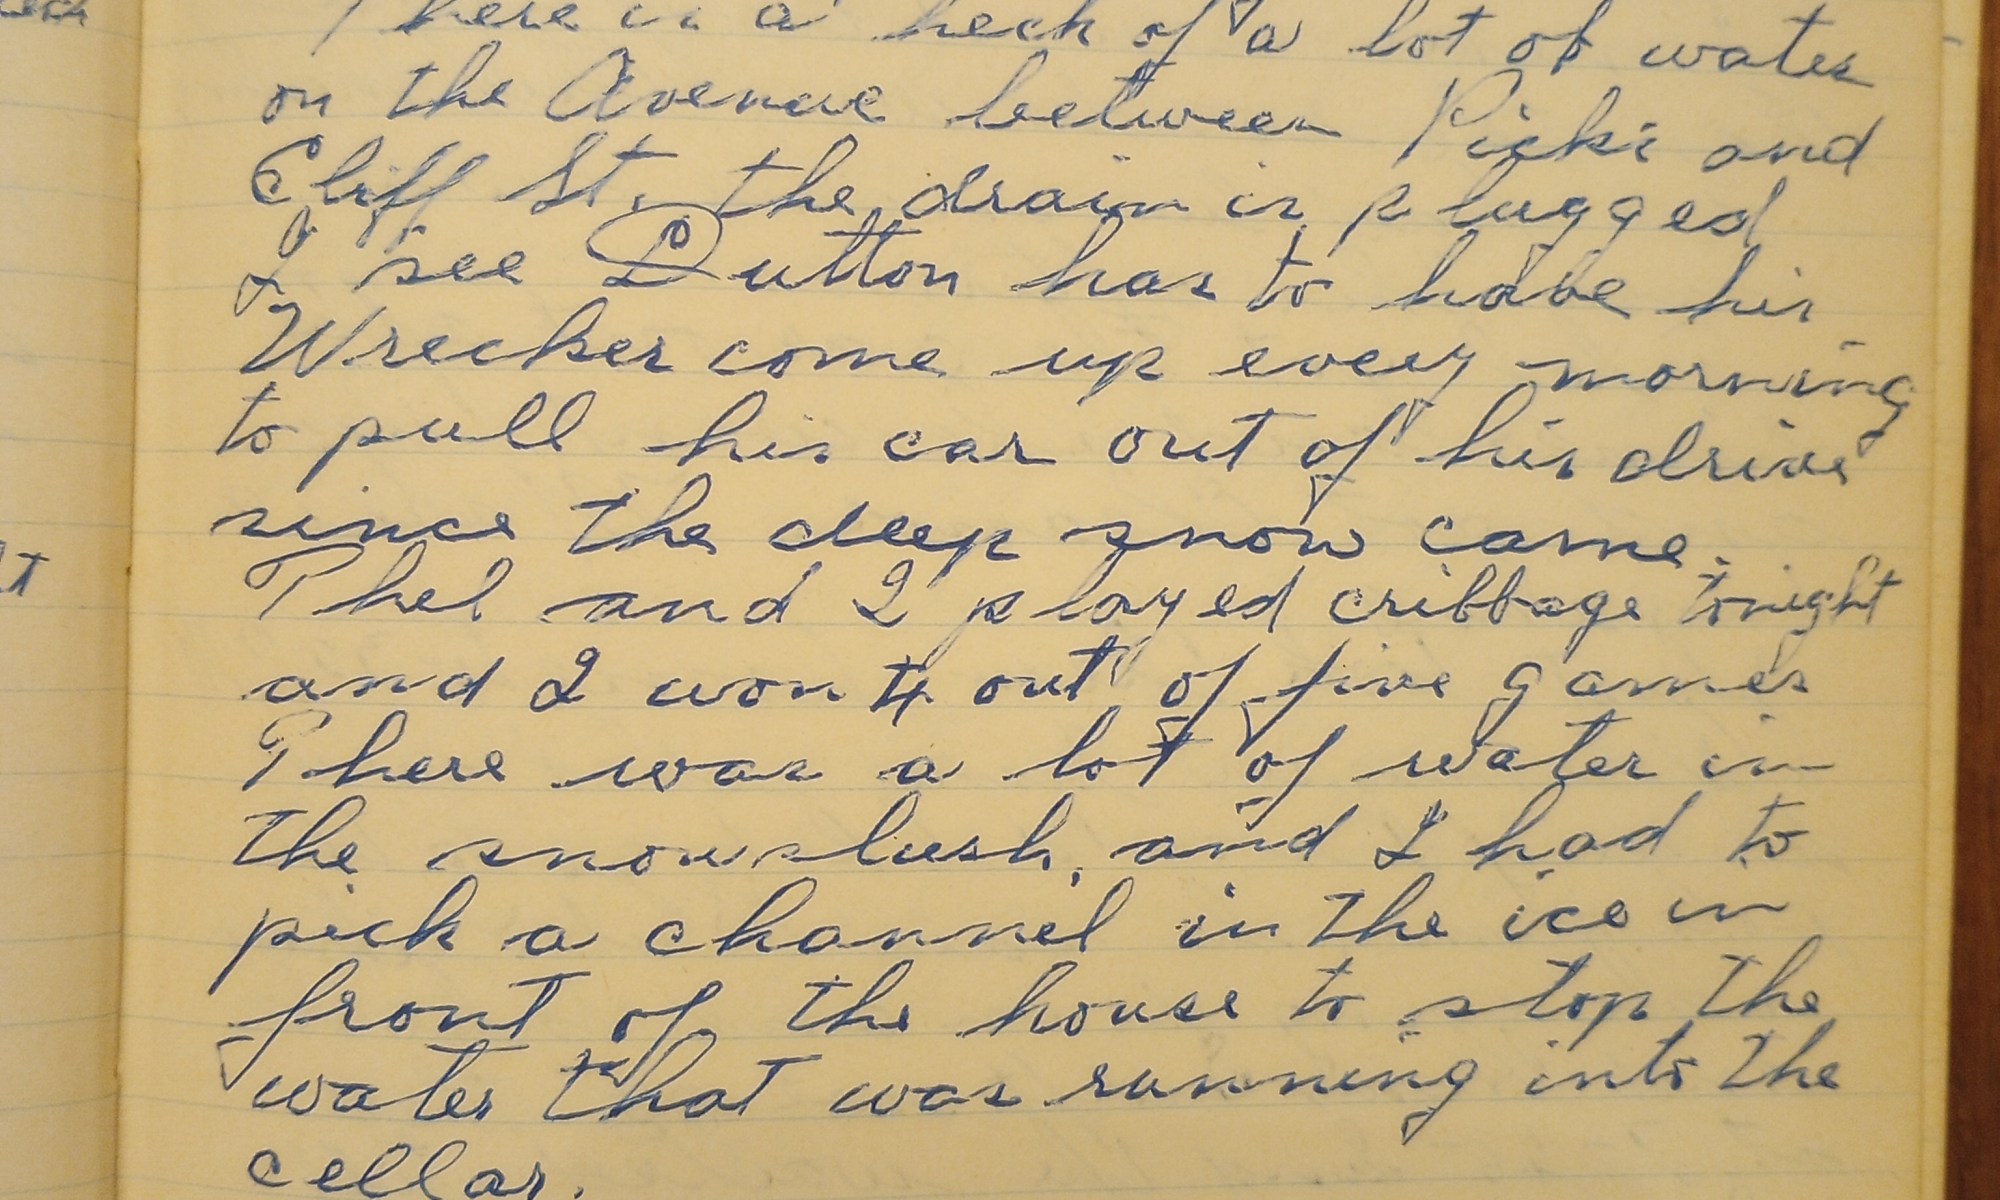 There is a heck of a lot of water
on the Avenue between Picks and
Cliff St. the drain is plugged
I see Dutton has to have his
Wrecker come up every morning
to pull his car out of his drive
since the deep snow came.
Phel and I played cribbage tonight
and I won 4 out of five games
There was a lot of water in
the snowslush, and I had to
pick a channel in the ice in
front of the house to stop the
water that was running into the
cellar.